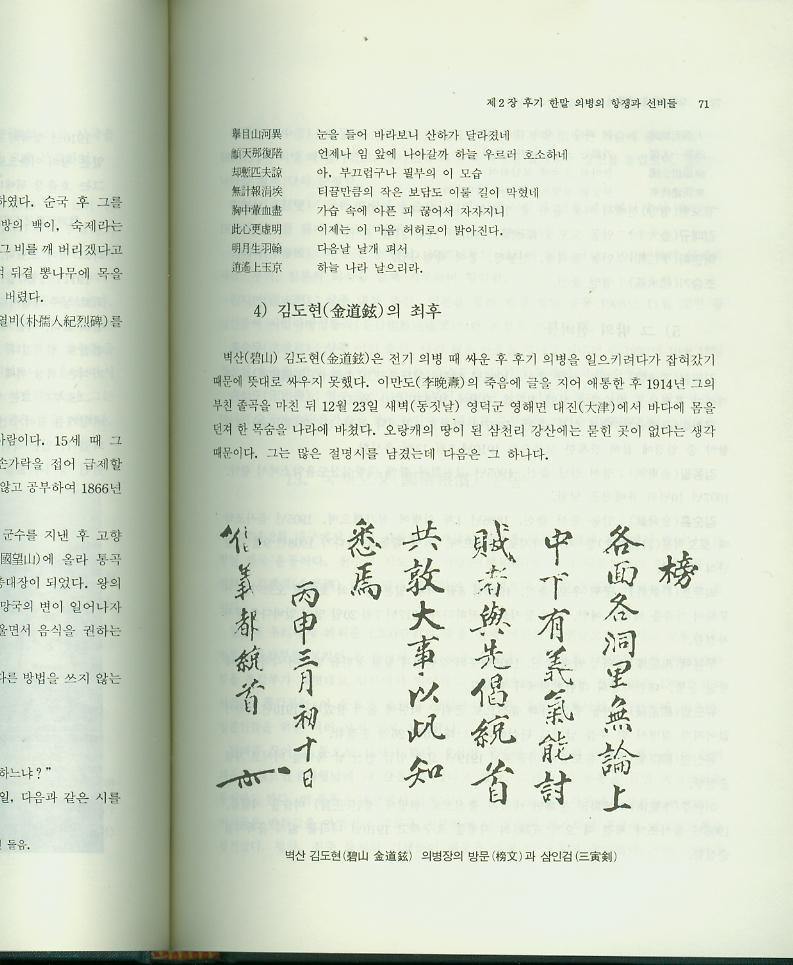 하였다. 순국 후 그를
방의 백이, 숙제라는
그 비를 깨 버리겠다고
뒤곁 뽕나무에 목을
버렸다.
열비(朴孺人紀烈碑)를
사람이다. 15세 때 그
손가락을 접어 급제할
않고 공부하여 1866년
군수를 지낸 후 고향
(國望山)에 올라 통곡
총대장이 되었다. 왕의
망국의 변이 일어나자
울면서 음식을 권하는
다른 방법을 쓰지 않는
하느냐?”
일, 다음과 같은 시를
들음.
제2장 후기 한말 의병의 항쟁과 선비들 71
擧目山河異 눈을 들어 바라보니 산하가 달라졌네
籲天那復階 언제나 임 앞에 나아갈까 하늘 우르러 호소하네
却慙匹夫諒 아, 부끄럽구나 필부의 이 모습
無計報涓埃 티끌만큼의 작은 보답도 이룰 길이 막혔네
胸中葷血盡 가습 속에 아픈 피 끊어서 자자지니
此心更虛明 이제는 이 마음 허허로이 밝아진다.
明月生羽翰 다음날 날개 펴서
逍遙上玉京 하늘 나라 날으리라.
4) 김도현(金道鉉)의 최후
벽산(碧山) 김도현(金道鉉)은 전기 의병 때 싸운 후 후기 의병을 일으키려다가 잡혀갔기
때문에 뜻대로 싸우지 못했다. 이만도(李晩燾)의 죽음에 글을 지어 애통한 후 1914년 그의
부친 졸곡을 마친 뒤 12월 23일 새벽(동짓날) 영덕군 영해면 대진(大津)에서 바다에 몸을
던져 한 목숨을 나라에 바쳤다. 오랑캐의 땅이 된 삼천리 강산에는 묻힌 곳이 없다는 생각
때문이다. 그는 많은 절명시를 남겼는데 다음은 그 하나다.
榜
各面各洞里無論上
中下有義氣能討
賊者與先倡統首
共敦大事以此知
悉焉
丙申三月初十日
倡義都統首
벽산 김도현(碧山 金道鉉) 의병장의 방문(榜文)과 삼인검(三寅剣)